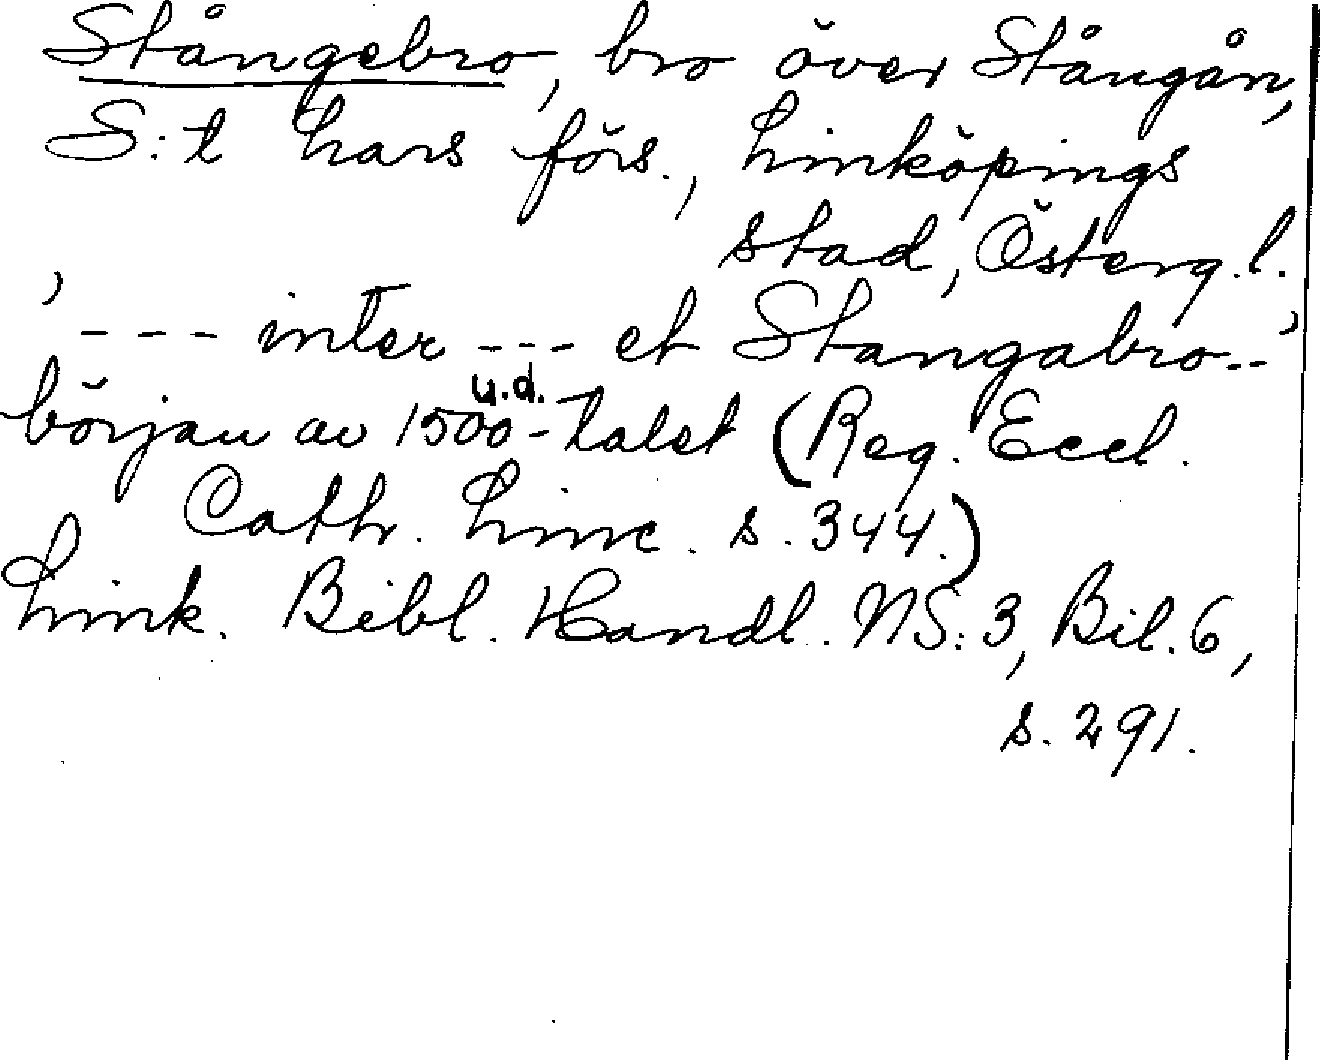 Stångebro, bro över Stångån,
S:t Lars förs., Linköpings
stad, Österg.l.
’--- inter --- et Stangabro--’
u.d.
början av 1500-talet (Reg. Eccl.
Cath. Linc. s. 344.)
Link. Bibl. Handl. NS: 3, Bil. 6,
s. 291.